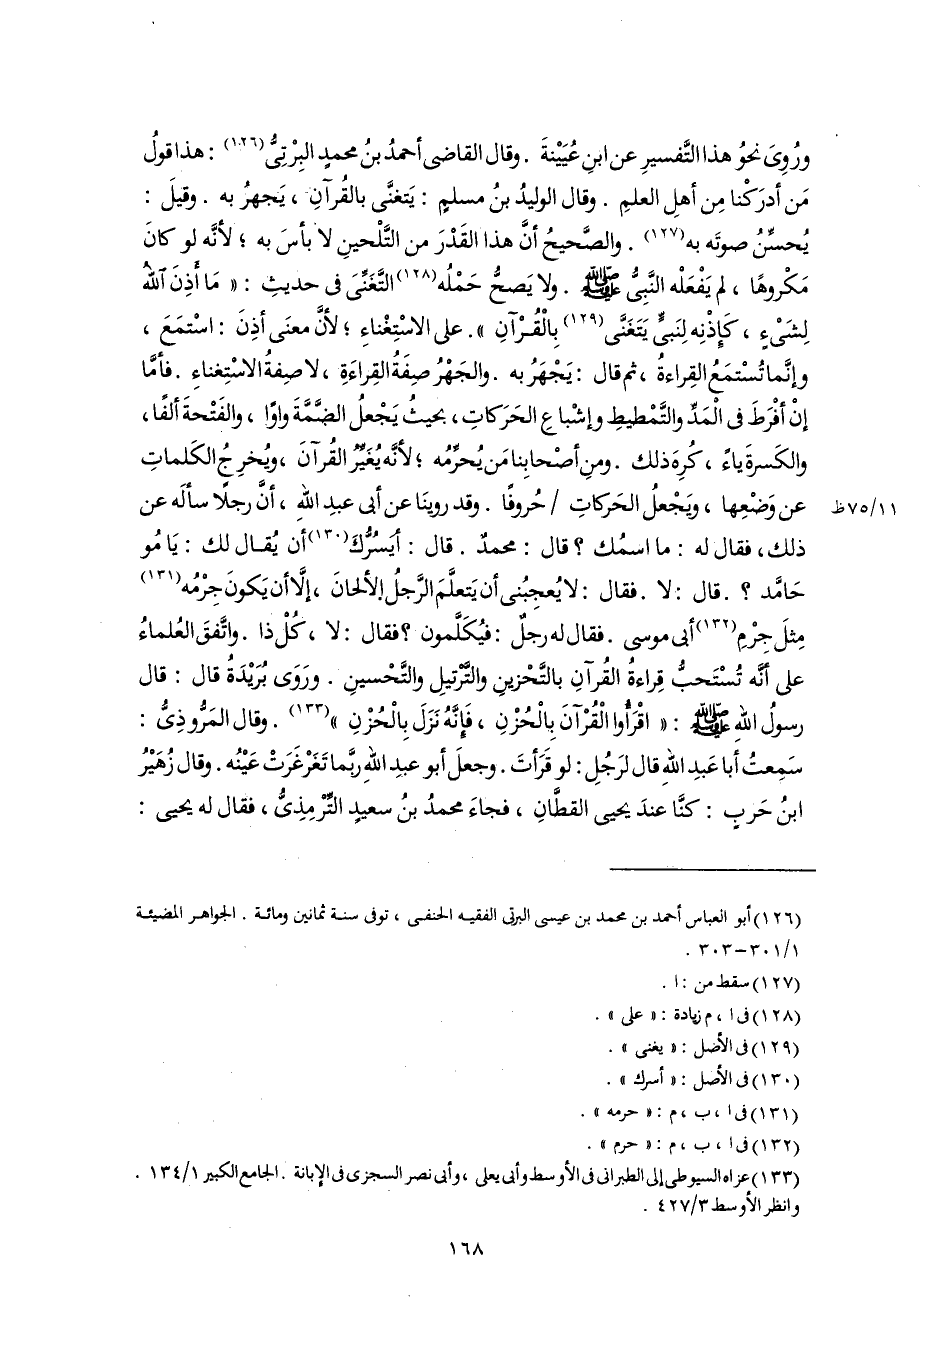 ورُوِىَ نحوُ هذا التَّفسيرِ عن ابنِ عُيَيْنةَ . وقال القاضى أحمدُ بنُ محمدٍ البِرْتِىُّ(١٢٦) : هذا قولُ
مَن أدرَكْنا مِن أهلِ العلمِ . وقال الوليدُ بنُ مسلمٍ : يَتغنَّى بالقُرآنِ ، يَجهرُ به . وقيلَ :
يُحسِّنُ صوتَه به(١٢٧) . والصَّحيحُ أنَّ هذا القَدْرَ من التَّلْحينِ لا بأسَ به ؛ لأنَّه لو كانَ
مَكْروهًا ، لم يَفْعَلْه النَّبىُّ ﷺ . ولا يَصحُّ حَمْلُه(١٢٨) التَّغَنِّىَ فى حديثِ : « مَا أَذِنَ ٱللهُ
لِشَىْءٍ ، كَإِذْنِه لِنَبىٍّ يَتَغَنَّى(١٢٩) بِالْقُرْآنِ ». على الاسْتِغْناءِ ؛ لأنَّ معنى أذِنَ : اسْتمَعَ ،
وإنَّما تُسْتمَعُ القِراءةُ ، ثم قال : يَجْهَرُ به . والجَهْرُ صِفَةُ القِراءَةِ ، لا صِفةُ الاسْتِغْناءِ . فأمَّا
إنْ أفْرَطَ فى الْمَدِّ والتَّمْطيطِ وإشْباعِ الحَرَكاتِ ، بحيثُ يَجْعلُ الضَّمَّةَ واوًا ، والفَتْحةَ ألفا ،
والكَسرةَ ياءً ، كُرِهَ ذلك . ومن أصْحابِنا مَن يُحرِّمُه ؛ لأنَّه يُغَيِّرُ القُرآنَ ، ويُخرِجُ الكَلماتِ
عن وَضْعِها ، ويَجْعلُ الحَركاتِ / حُروفًا . وقد روينَا عن أبى عبدِ اللهِ ، أنَّ رجلًا سألَه عن ١١/٧٥ظ
ذلك ، فقال له : ما اسمُك ؟ قال : محمدٌ . قال : أيَسُرُّكَ(١٣٠) أن يُقـال لك : يَا مُو
حَامَّد ؟ . قال : لا . فقال : لا يُعجِبُنى أن يَتعلَّمَ الرَّجلُ الألحانَ ، إلَّا أن يَكونَ جِرْمُه(١٣١)
مِثلَ جِرْمِ(١٣٢) أبى موسى . فقال له رجلٌ : فيُكَلَّمون ؟ فقال : لا ، كُلْ ذا . واتَّفقَ العُلماءُ
على أنَّه تُسْتَحبُّ قِراءةُ القُرآنِ بالتَّحْزينِ والتَّرْتيلِ والتَّحْسينِ . ورَوَى بُرَيْدَةُ قال : قال
رسولُ اللهِ ﷺ : « اقْرَأُوا الْقُرْآنَ بِالْحُزْنِ ، فَإِنَّهُ نَزَلَ بِالْحُزْنِ »(١٣٣) . وقال المَرُّوذِىُّ :
سَمِعتُ أبا عَبدِ اللهِ قال لرَجُلٍ : لو قَرَأتَ . وجعلَ أبو عبدِ اللهِ ربَّما تَغَرْغَرَتْ عَيْنُه . وقال زُهَيْرُ
ابنُ حَربٍ : كنَّا عندَ يحيى القطَّانِ ، فجاءَ محمدُ بنُ سعيدٍ التِّرْمِذِىُّ ، فقال له يحيى :
(١٢٦) أبو العباس أحمد بن محمد بن عيسى البرتى الفقيه الحنفـى ، توفى سنـة ثمانين ومائـة . الجواهـر المضيئـة
٣٠١/١-٣٠٣ .
(١٢٧) سقط من : ا .
(١٢٨) فى ا ، م زيادة : « على » .
(١٢٩) فى الأصل : « يغنى » .
(١٣٠) فى الأصل : « أسرك » .
(١٣١) فى ا ، ب ، م : « حرمه » .
(١٣٢) فى ا ، ب ، م : « حرم » .
(١٣٣) عزاه السيوطى إلى الطبرانى فى الأوسط وأبى يعلى ، وأبى نصر السجزى فى الإبانة . الجامع الكبير ١٣٤/١ .
وانظر الأوسط ٤٢٧/٣ .
١٦٨